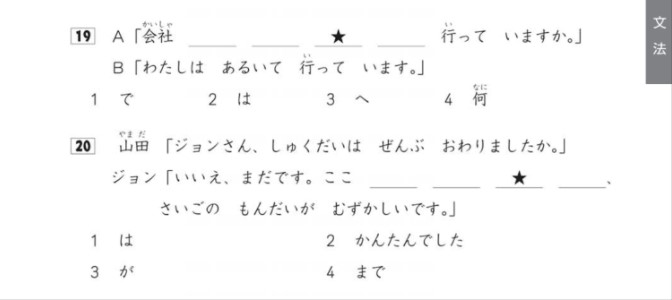 文法
19 A「会社 ＿＿ ＿＿ ★ ＿＿ 行って いますか。」
B「わたしは あるいて 行って います。」
1 で 2 は 3 へ 4 何
20 山田「ジョンさん、しゅくだいは ぜんぶ おわりましたか。」
ジョン「いいえ、まだです。ここ ＿＿ ＿＿ ★ ＿＿、
さいごの もんだいが むずかしいです。」
1 は 2 かんたんでした
3 が 4 まで